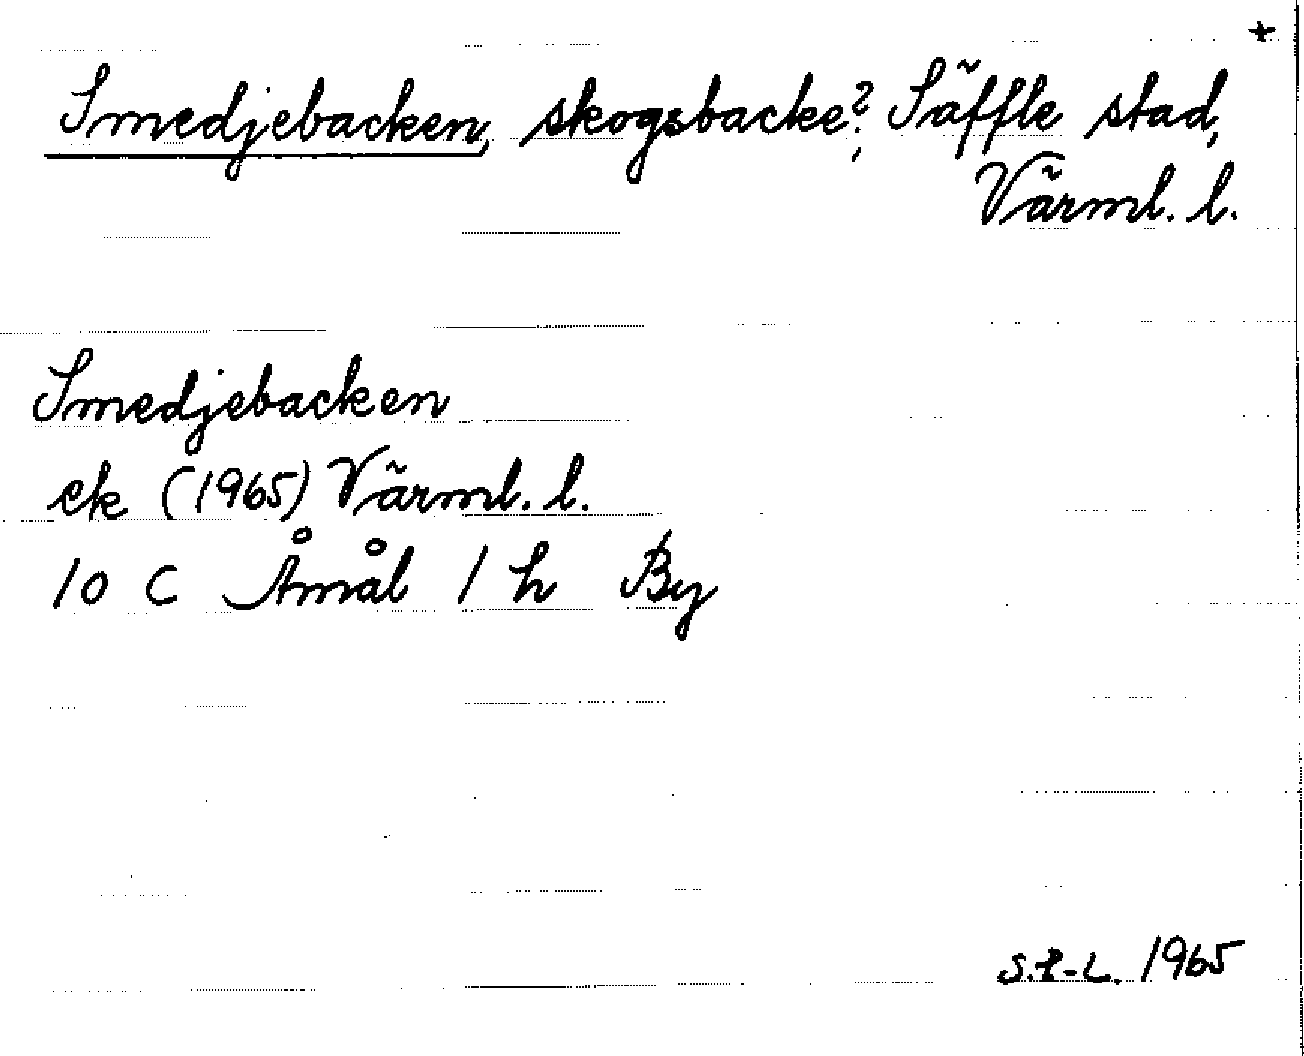 +
Smedjebacken, skogsbacke?, Säffle stad,
Värml. l.
Smedjebacken
ek (1965) Värml. l.
10 C Åmål 1 h By
1965